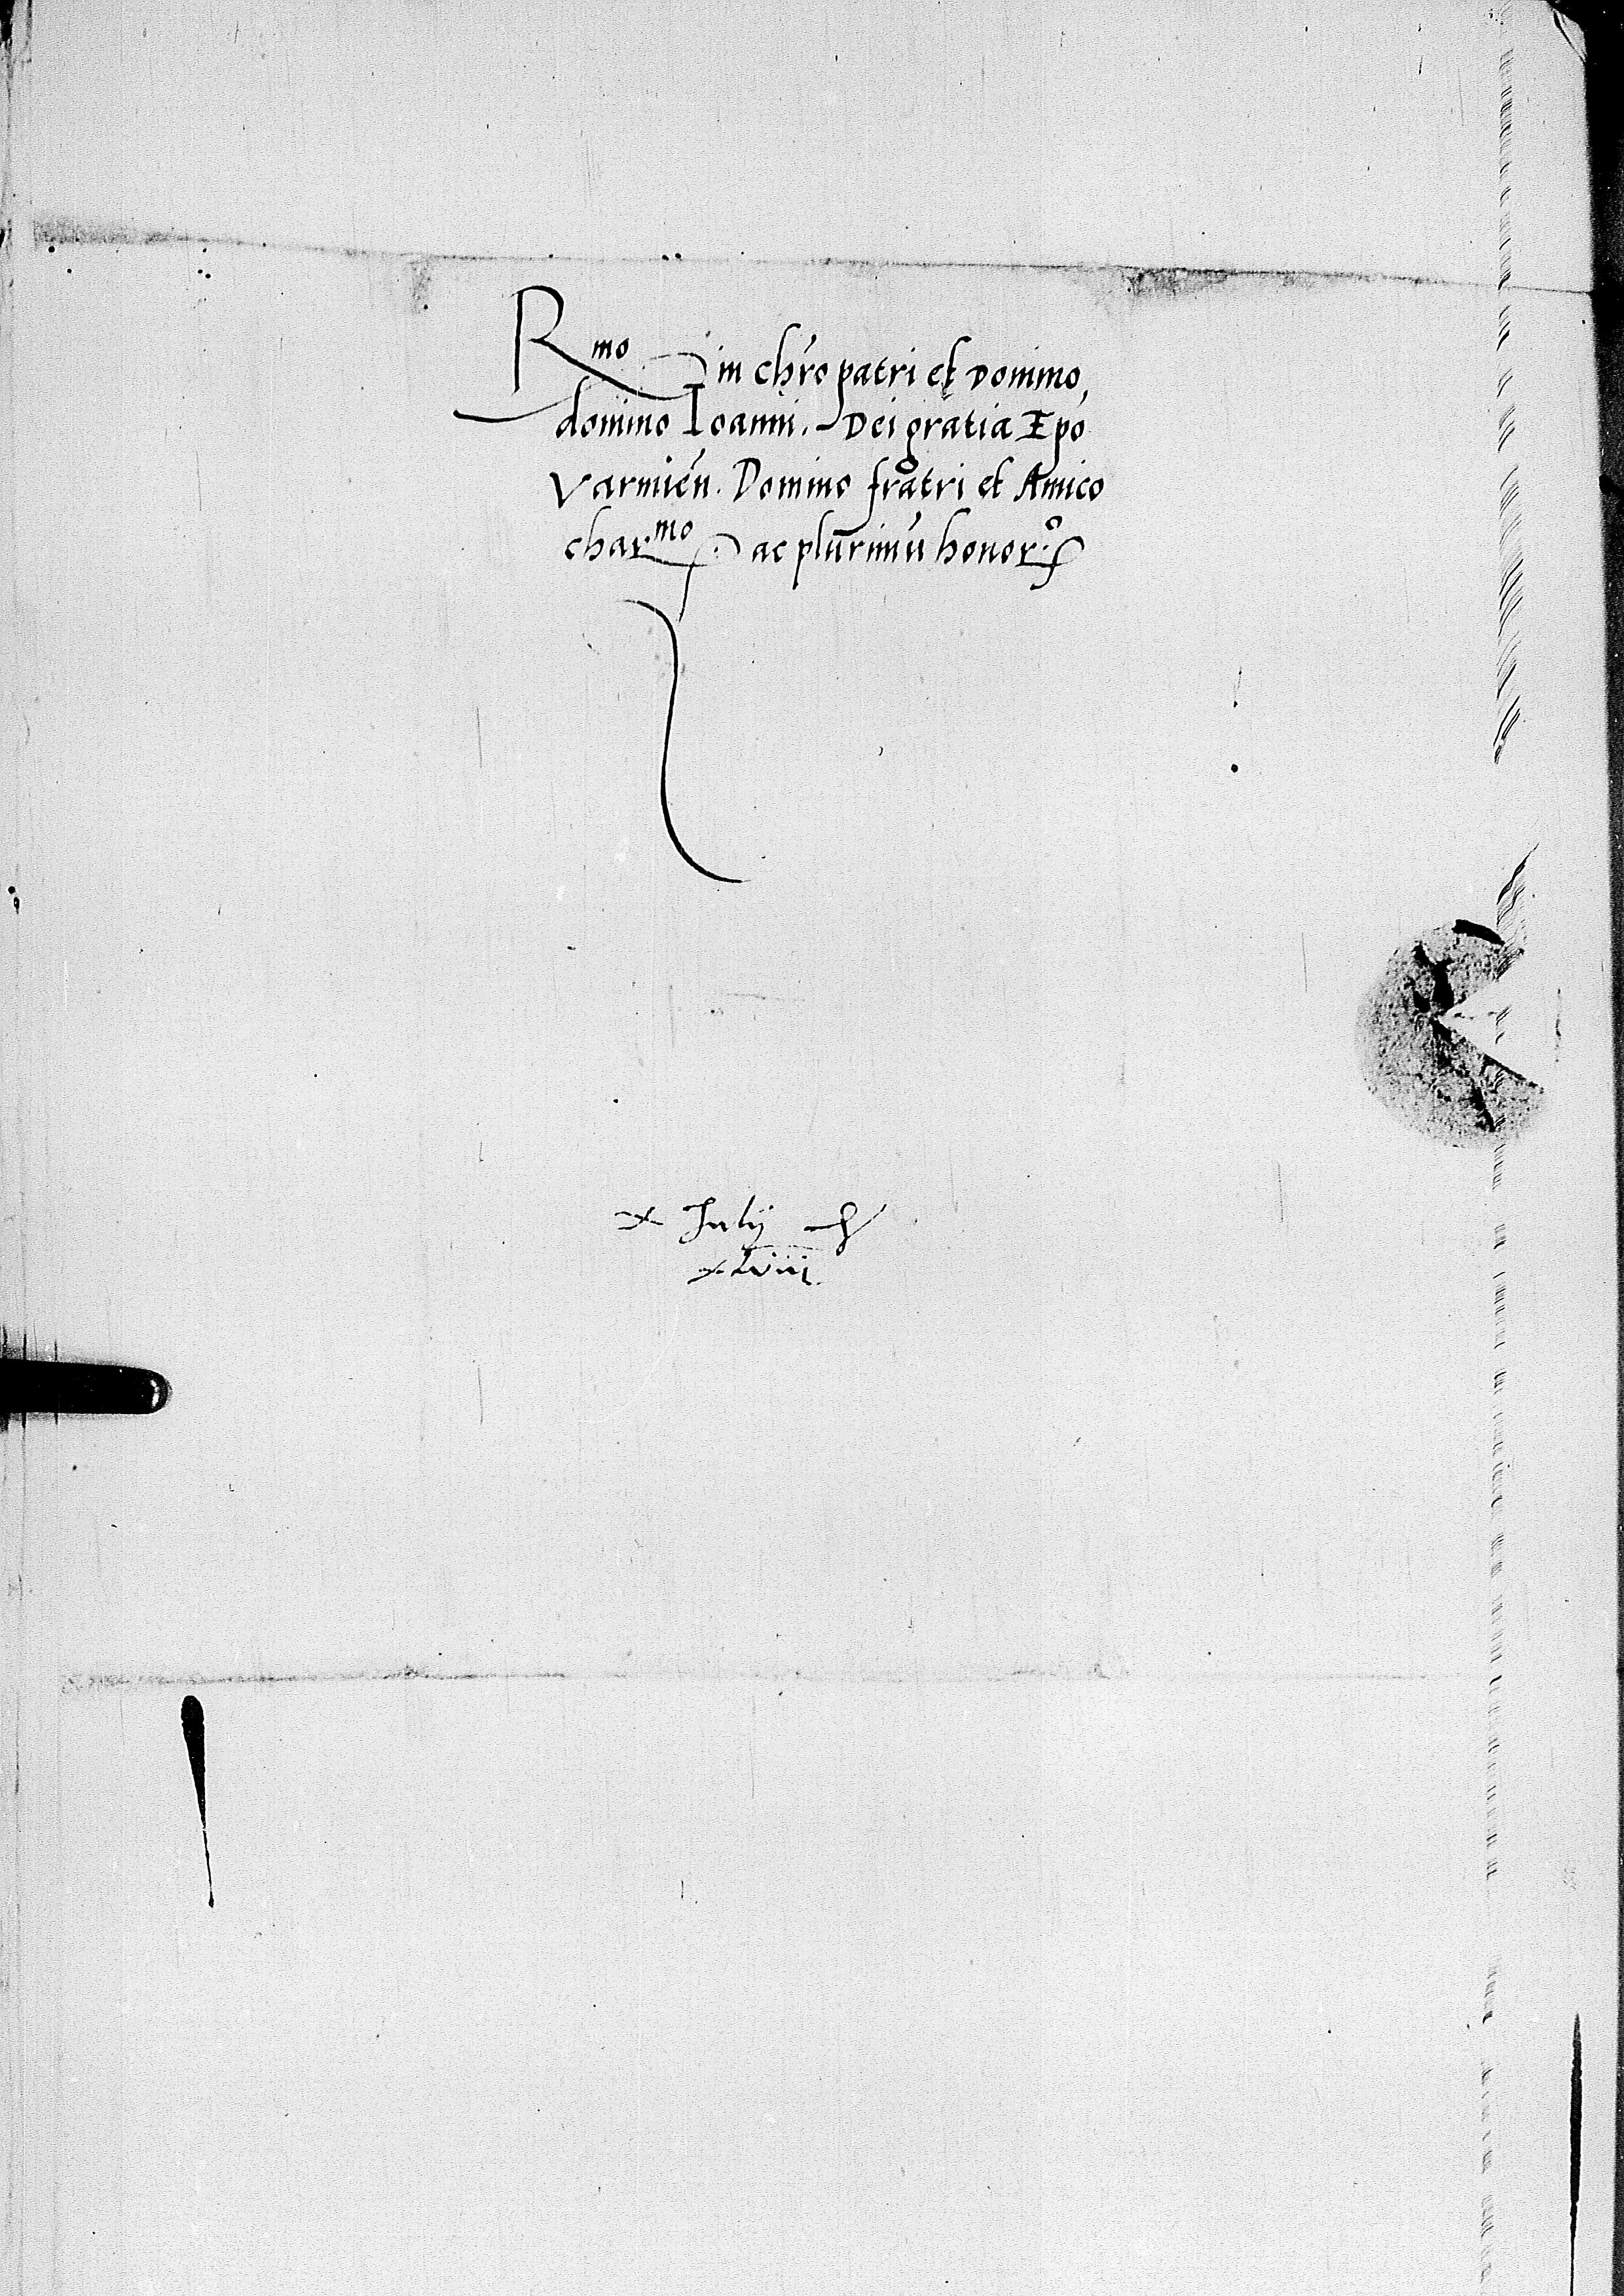 Rmo in chro patri et Domino,
domino Ioanni. Dei gratia Epo
Varmien. Domino fratri et Amico
char.mo ac plurimu honor.o
x July
xlviii.